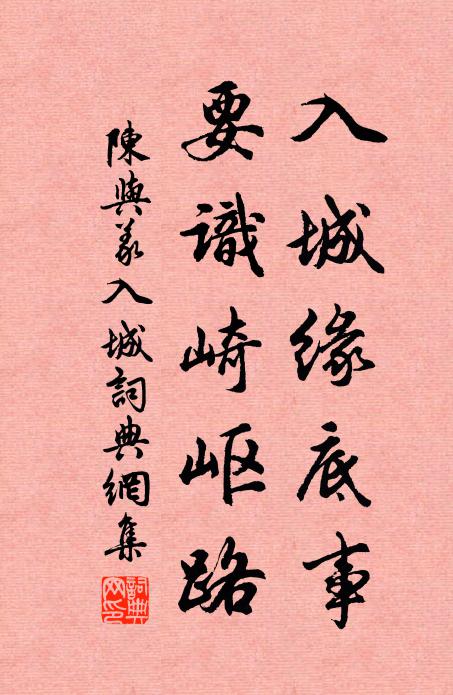 入城缘底事
要識崎岖路
陳與義入城詞典網集
詞典網印